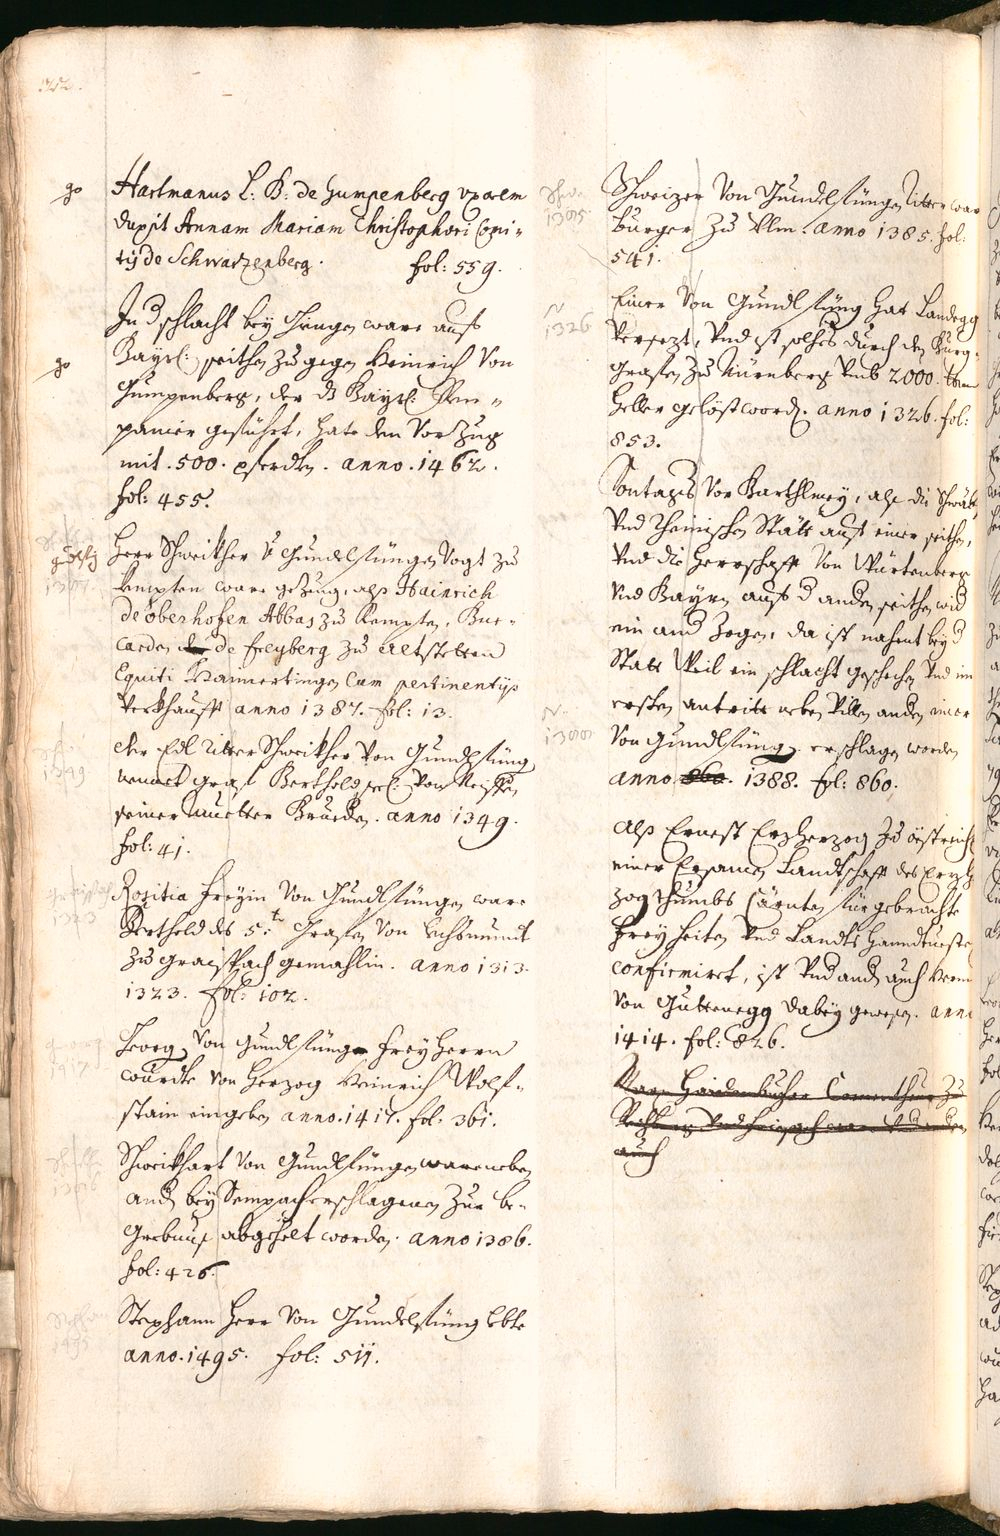 Hartmanus L: B: de Gumpenberg vxorem
duxit Annam Mariam Christophori Comi-
tis de Schwarzenberg. fol: 559.
In d schlacht bey Gingen ware auf
Bayrl: seithen zu gegen Heinrich von
Gumpenberg, der ds Bayrl: Pan-
panier geführt, hate den Vorzug
mit .500. pferdten. anno .1462.
fol: 455.
Herr Schweikher v: Gundlfüngen Vogt zu
Kempten ware gezeug, alß Hainrich
de Oberhofen Abbas zu Kempten, Bur-
carden de Freyberg zu Altstetten
Equiti Cum pertinentijs
verkhaufft anno 1387. fol: 13.
Der Edl Ritter Schweikher von Gundlfüng
nennet Graf Berthold sel: von Neiffen
seiner Muetter Brueder. anno 1349.
fol: 41.
Freyin von Gundlfüngen ware
Berthold des 5.t Grafen von
zu Graispach gemahlin. anno 1313.
1323. fol: 102.
Georg von Gundlfüngen Freyherrn
wurdte von Herzog Heinrich Wolf-
stain eingeben anno .1417. fol: 361.
Schweikhart von Gundlfüngen ware neben
andn bey Sempach erschlagenen zur be-
grebnus abgeholt worden. anno 1386.
fol: 426.
Stephann Herr von Gundelfüng lebte
anno .1495. fol: 511.
Schweizer von Gundelfüngen Ritter war
Burger zu Ulm. anno 1385. fol:
541.
1385.
Einer von Gundlfüng hat Landegg
versezt, vnd ist solches durch den Burg-
grafen zu Nürnberg vmb 2000.
Heller gelöst wordn. anno 1326. fol:
853.
1326
Sontags vor Barthlmey, alß die Schwäb
vnd Rheinischen Stätt auf einer seithen,
vnd die Herrschafft von Würtenberg
vnd Bayrn auf d andern seithen wid
ein and zogen, da ist nahent bey d
Statt Weil ein schlacht geschechen vnd im
ersten antritt neben villen andern einer
von Gundlfüng erschlagen worden
anno 860. 1388. fol: 860.
Alß Ernest Erzherzog zu Östreich
einer Ersamen Landtschafft des Erzh
zogthumbs Cärnten fürgebrachte
Freyheiten vnd Landts Handtueste
confirmirt, ist vnd andn auch
von Guttenegg dabey gewesn. anno
1414. fol: 826.
Haidenbucher Comenthur zu
auch